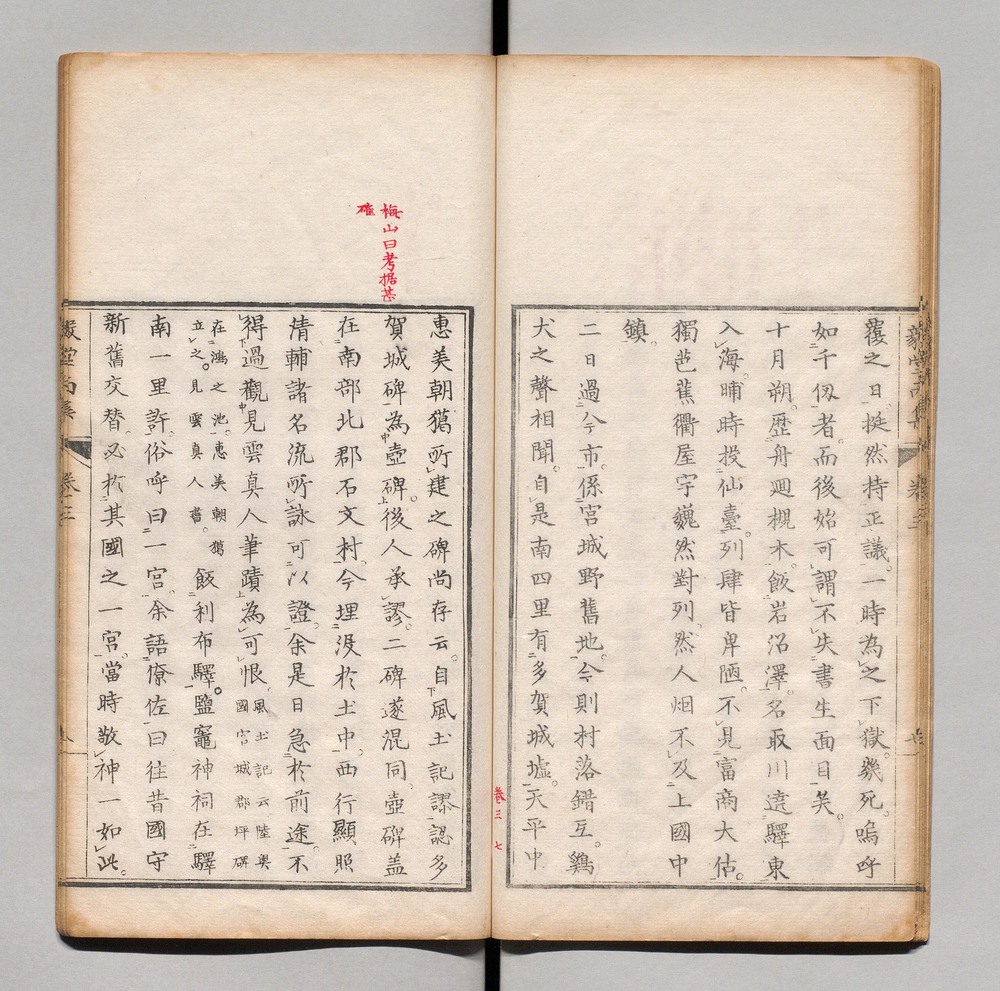 覆之日挺然持正議一時為之下獄幾死嗚呼
如千仭者而後始可謂不失書生面目矣
十月朔歴舟廻槻木飯岩沼澤名取川遠驛東
入海晡時投仙臺列肆皆卑陋不見富商大估
獨芭蕉衢屋宇巍然對列然人烟不及上國中
鎮
二日過今市係宮城野舊地今則村落錯互鷄
犬之聲相聞自是南四里有多賀城墟天平中
卷三 七
惠美朝獦所建之碑尚存云自風土記謬認多
賀城碑為壺碑後人承謬二碑遂混同壺碑盖
在南部北郡石文村今埋沒於土中西行顯照
清輔諸名流所詠可以證余是日急於前途不
得過觀見雲真人筆蹟為可恨風土記云陸奥國宮城郡坪碑
在鴻之池惠美朝獦立之見雲真人書飯利布驛鹽竈神祠在驛
南一里許俗呼曰一宮余語僚佐曰往昔國守
新舊交替必於其國之一宮當時敬神一如此
梅山曰考据甚
確
卷三